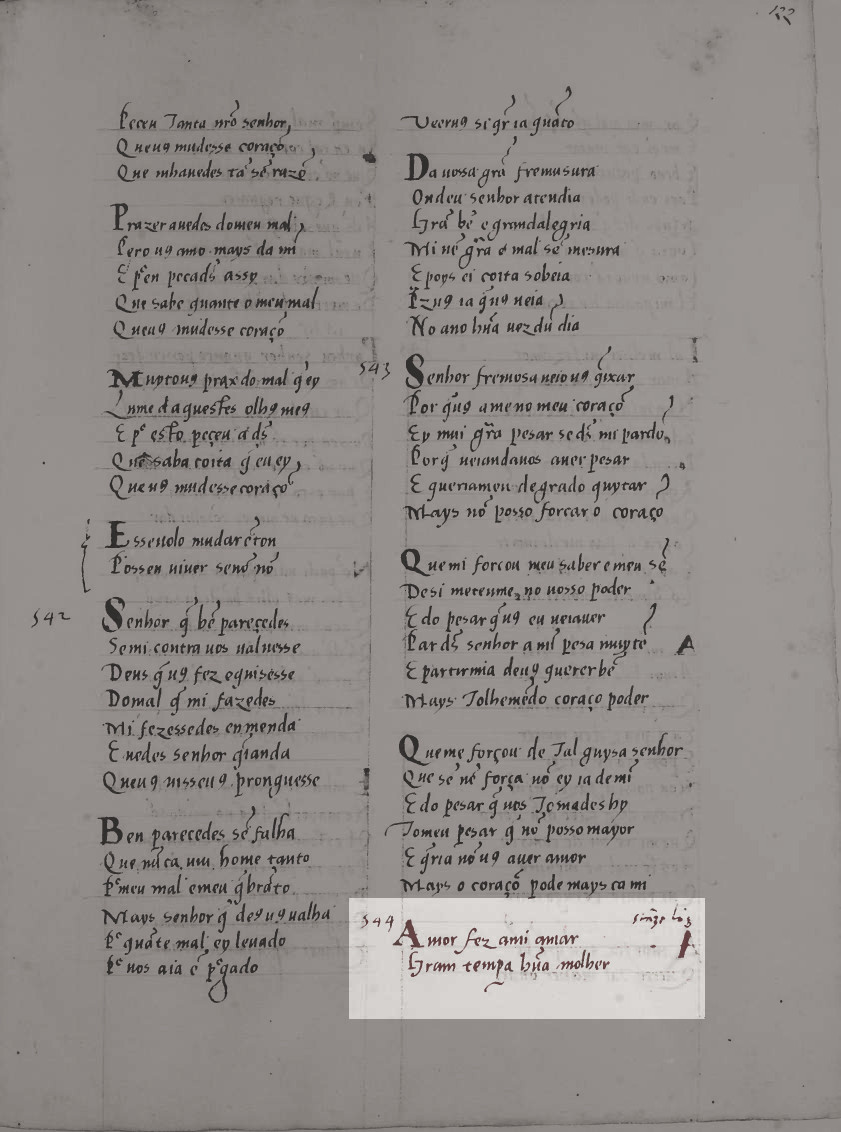 122
Peceu Tanta nr̃o senhor,
Queuꝯ mudesse coraço
Que mhauedes ta sẽ razõ
Prazer auedes domeu mal,
Pero uꝯ amo mays da mi
E pen pecads assy
Que sabe quante o meu mal
Queuꝯ mudesse coraço
Muytouꝯ praz do mal q̃ ey
Lume daquestes olhꝯ meꝯ
E pᵉ esto peçeu a ds̃
Que saba coita q̃ eu ey,
Queuꝯ mudesse coraço
Esseuolo mudar cton
Possen uiuer senõ nõ
542
Senhor q̃ bẽ pareçedes
Semi contra uos ualuesse
Deus q̃ uꝯ fez equisesse
Domal q̃ mi fazedes
Mi fezessedes enmenda
E uedes senhor qianda
Queuꝯ uisseuꝯ prouguesse
Ben parecedes sẽ falha
Que nũca uiu home tanto
Pᵉmeu mal emeu q̃brãto
Mays senhor q̃ deꝯ uꝯ ualha
Pᵉ quãte mal ey leuado
Pᵉ uos aia ẽ pᵉgado
Veeruꝯ si qr̃ ia quãto
Da uossa grã fremusura
Ondeu senhor atendia
Gram bẽ e grandalegria
Mi uẽ gr̃a e mal sẽ mesura
E poys ei coita sobeia
Pzuꝯ ia q̃ uꝯ ueia
No ano hũa uez dũ dia
543
Senhor fremosa ueio uꝯ q̃ixar
Por q̃uꝯ ame no meu coraçõ
Ey mui gr̃a pesar se ds̃ mi pardõ,
Porq̃ ueiandauos auer pesar
E queriameu degrado quytar
Mays nõ posso forcar o coraço
Quemi forcou meu saber e meu sẽ
Desi meteume, no uosso poder
E do pesar q̃uꝯ eu ueiauer
Par ds̃ senhor a mĩ pesa muytẽ
A
E partirmia deuꝯ querer bẽ
Mays Tolhemẽdo coraço poder
Queme forçou de Tal guysa senhor
Que sẽ nẽ força nõ ey ia demi
E do pesar q̃ uos Tomades hy
Tomeu pesar q̃ nõ posso mayor
E qria nõuꝯ auer amor
Mays o coraçõ pode mays ca mi
544
Amor fez ami amar
A
Gram tempa hũa molher